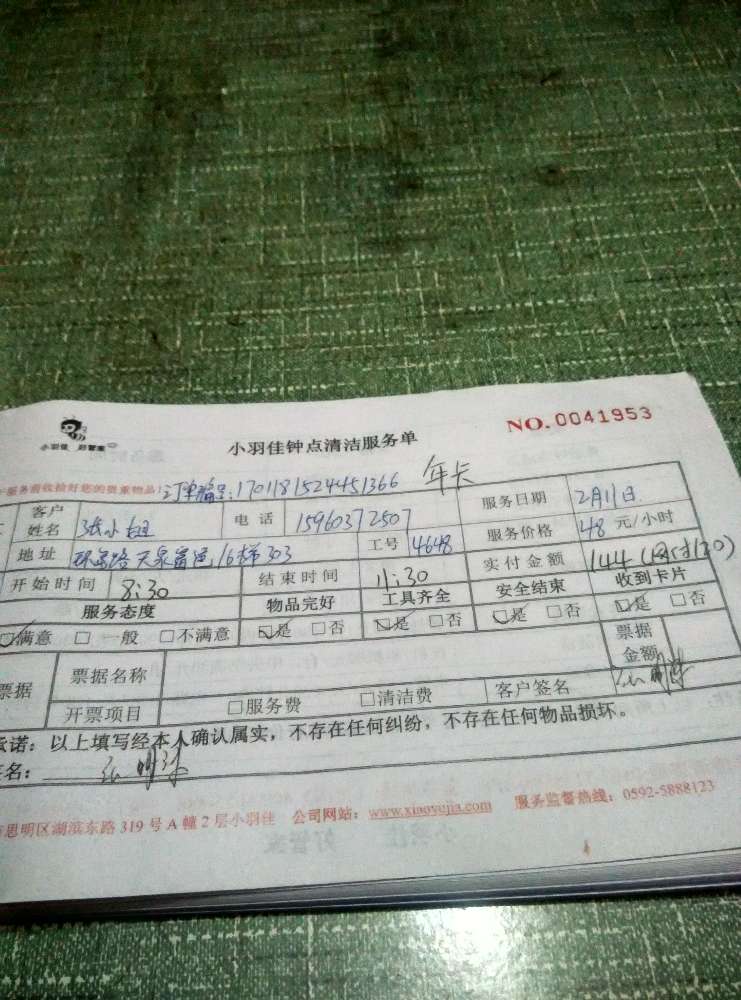 小羽佳 好管家
小羽佳钟点清洁服务单
NO.0041953
服务前收拾好您的贵重物品!
订单编号:1701181524451366 年卡
客户姓名 张小姐 电话 15960372507 服务日期 2月11日
地址 天泉 16梯303 工号 4648 服务价格 48元/小时
开始时间 8:30 结束时间 11:30 实付金额 144
服务态度 物品完好 工具齐全 安全结束 收到卡片
☑满意 □一般 □不满意 ☑是 □否 ☑是 □否 ☑是 □否 ☑是 □否
票据 票据名称 票据金额
开票项目 □服务费 □清洁费 客户签名
承诺:以上填写经本人确认属实,不存在任何纠纷,不存在任何物品损坏。
签名:
思明区湖滨东路319号A幢2层小羽佳 公司网站:www.xiaoyujia.com 服务监督热线:0592-5888123